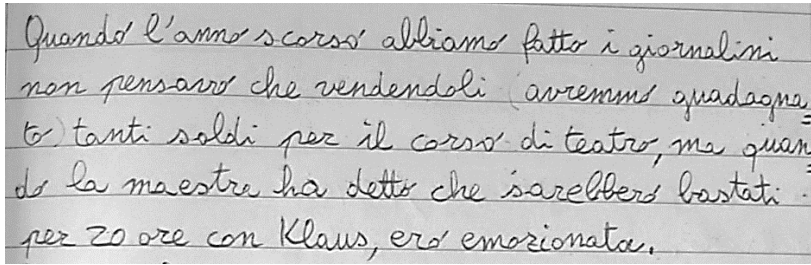 Quando l'anno scorso abbiamo fatto i giornalini
non pensavo che vendendoli (avremmo guadagna=
to) tanti soldi per il corso di teatro, ma quan=
do la maestra ha detto che sarebbero bastati
per 20 ore con Klaus, ero emozionata.